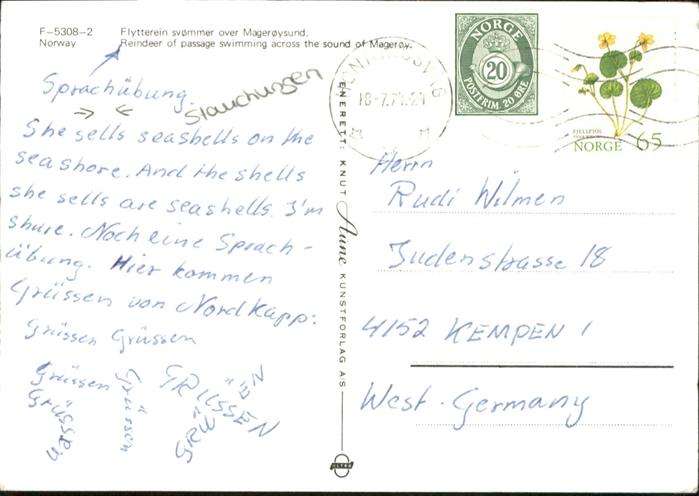 F-5308-2
Norway
Flytterein svømmer over Magerøysund.
Reindeer of passage swimming across the sound of Magerøy.
Sprachübung.
Stauchungen
She sells seashells on the
seashore. And the shells
she sells are seashells I'm
shure. Noch eine Sprach-
übung. Hier kommen
Grüssen von Nordkapp:
Grüssen Grüssen
Grüssen Grüssen GRÜSSEN
Grüssen
ENERETT: KNUT Aune KUNSTFORLAG AS
NORGE
20
POSTFRIM. 20 ØRE
NORGE 65
Herrn
Rudi Wilmen
Judenstrasse 18
4152 KEMPEN 1
West-Germany